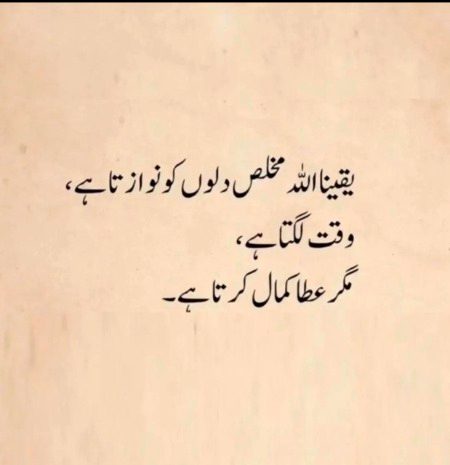 یقینا اللہ مخلص دلوں کو نوازتا ہے،
وقت لگتا ہے،
مگر عطا کمال کرتا ہے۔